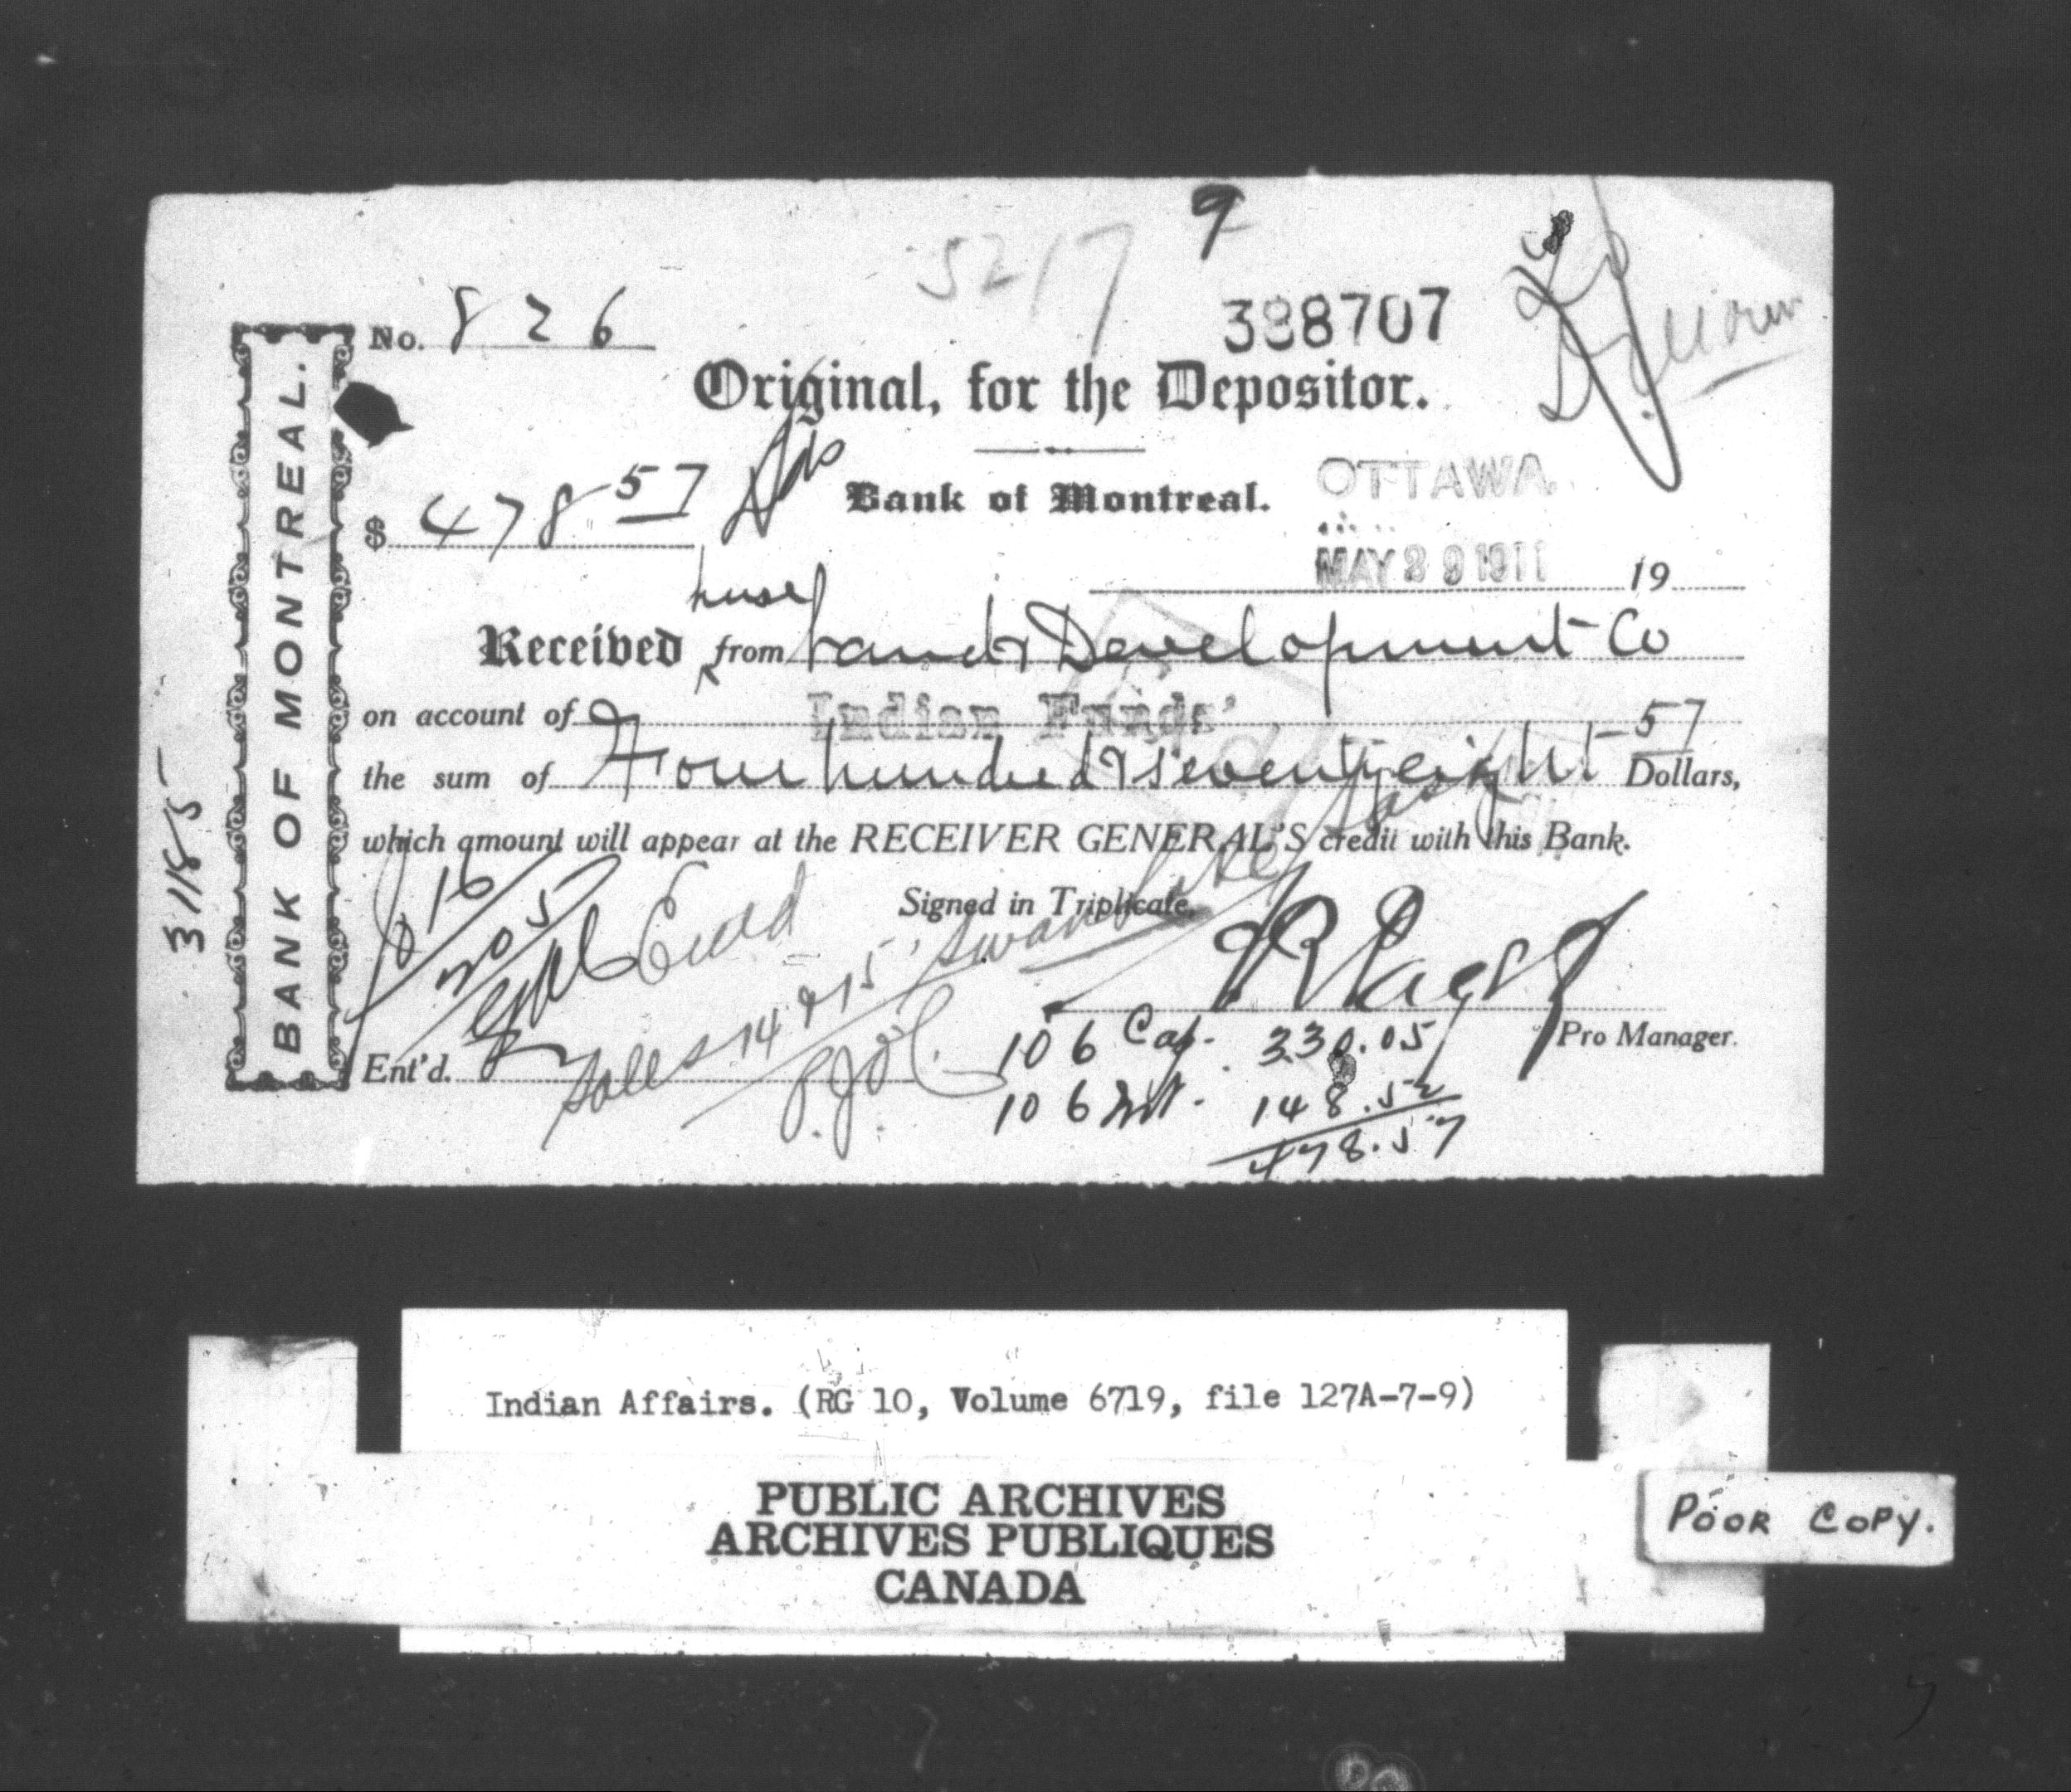 9
5217
No. 826
388707
Original, for the Depositor.
BANK OF MONTREAL.
31185
$ 478 57
Bank of Montreal.
OTTAWA
MAY 29 1911
19
Received from Land & Development Co
on account of Indian Funds
the sum of Four hundred & seventy eight 57 Dollars,
which amount will appear at the RECEIVER GENERAL'S credit with this Bank.
Signed in Triplicate,
Sales 14 & 15 Swan Lake
Pro Manager.
Ent'd.
106 Cap. 330.05
106 Int. 148.52
478.57
Indian Affairs. (RG 10, Volume 6719, file 127A-7-9)
PUBLIC ARCHIVES
ARCHIVES PUBLIQUES
CANADA
POOR COPY.